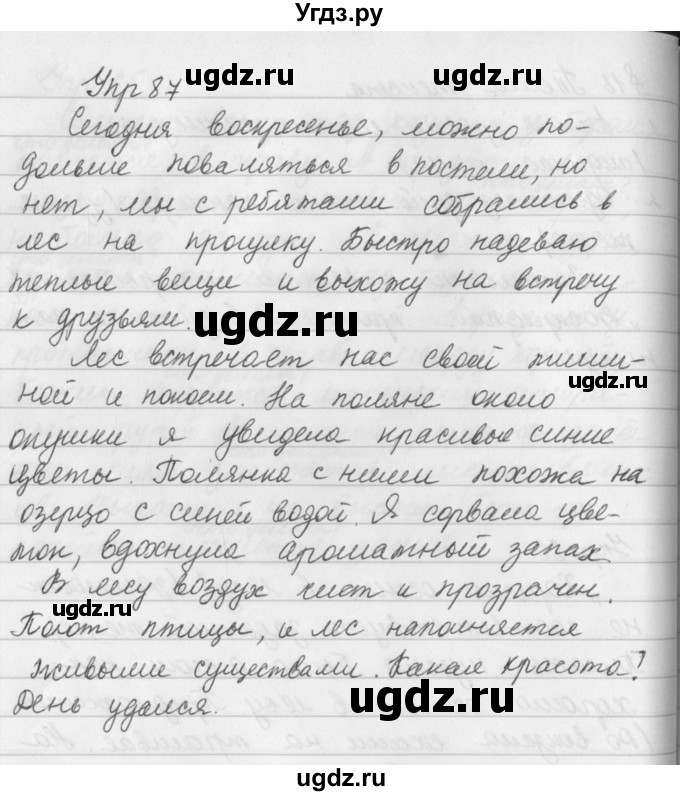 Угдз.ру
Упр 87
ugdz.ru
ugdz.ru
Сегодня воскресенье, можно по-
дольше поваляться в постели, но
нет, мы с ребятами собрались в
лес на прогулку. Быстро надеваю
теплые вещи и выхожу на встречу
к друзьям.
ugdz.ru
Лес встречает нас своей тиши-
ugdz.ru
ной и покоем. На поляне около
опушки я увидела красивые синие
цветы. Полянка с ними похожа на
озерцо с синей водой. Я сорвала цве-
ток, вдохнула ароматный запах
В лесу воздух чист и прозрачен.
ugdz.ru
Поют птицы, и лес наполняется
живыми существами. Какая красота!
День удался.
ugdz.ru
ugdz.ru